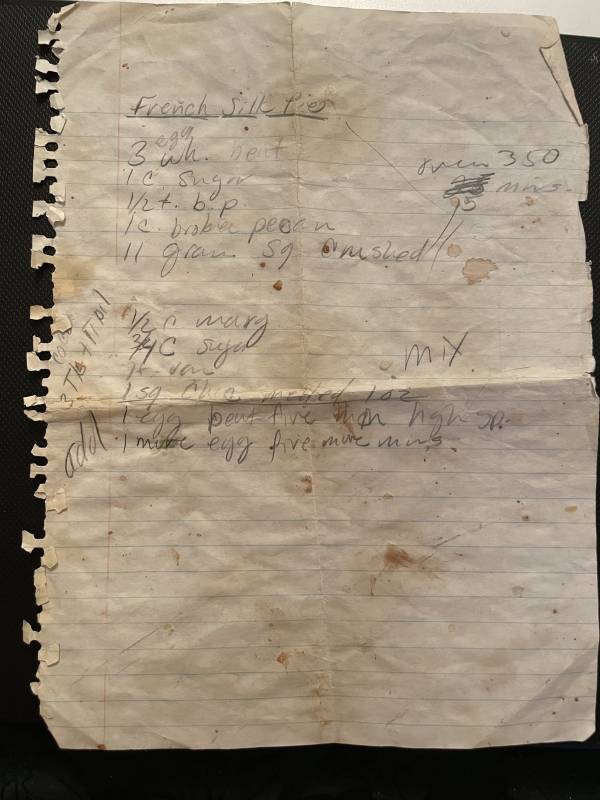 French Silk Pies
egg
3 wh. beat
1 c. sugar
1/2 t. b.p.
1 c. broken pecan
11 gram sq crushed
oven 350
25 mins.
1/2 c marg
3/4 C sugar
1 t. van
1 sq Choc melted 1 oz
1 egg beat five min high sp.
1 more egg five more mins
mix
3 Tbs +
add